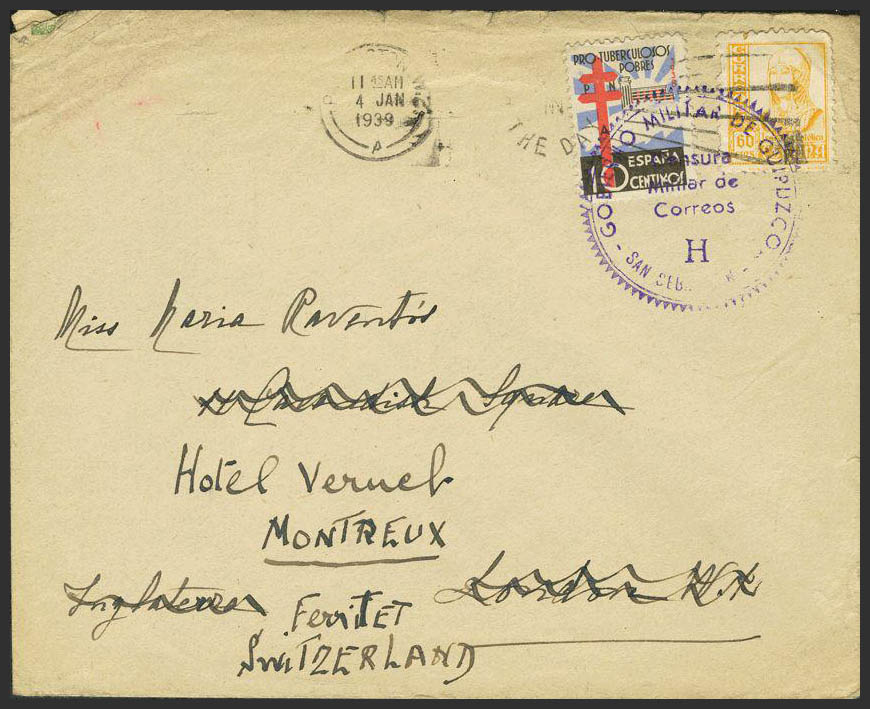 11 15 AM
4 JAN
1939
A
THE DA
PRO TUBERCULOSOS
POBRES
ESPAÑA
10 CENTIMOS
60
GOBIERNO MILITAR DE GUIPUZCOA
Censura
Militar de
Correos
H
- SAN SEBASTIAN -
Miss Maria Raventós
Square
Hotel Vernet
MONTREUX
Inglaterra
London
Territet
SWITZERLAND